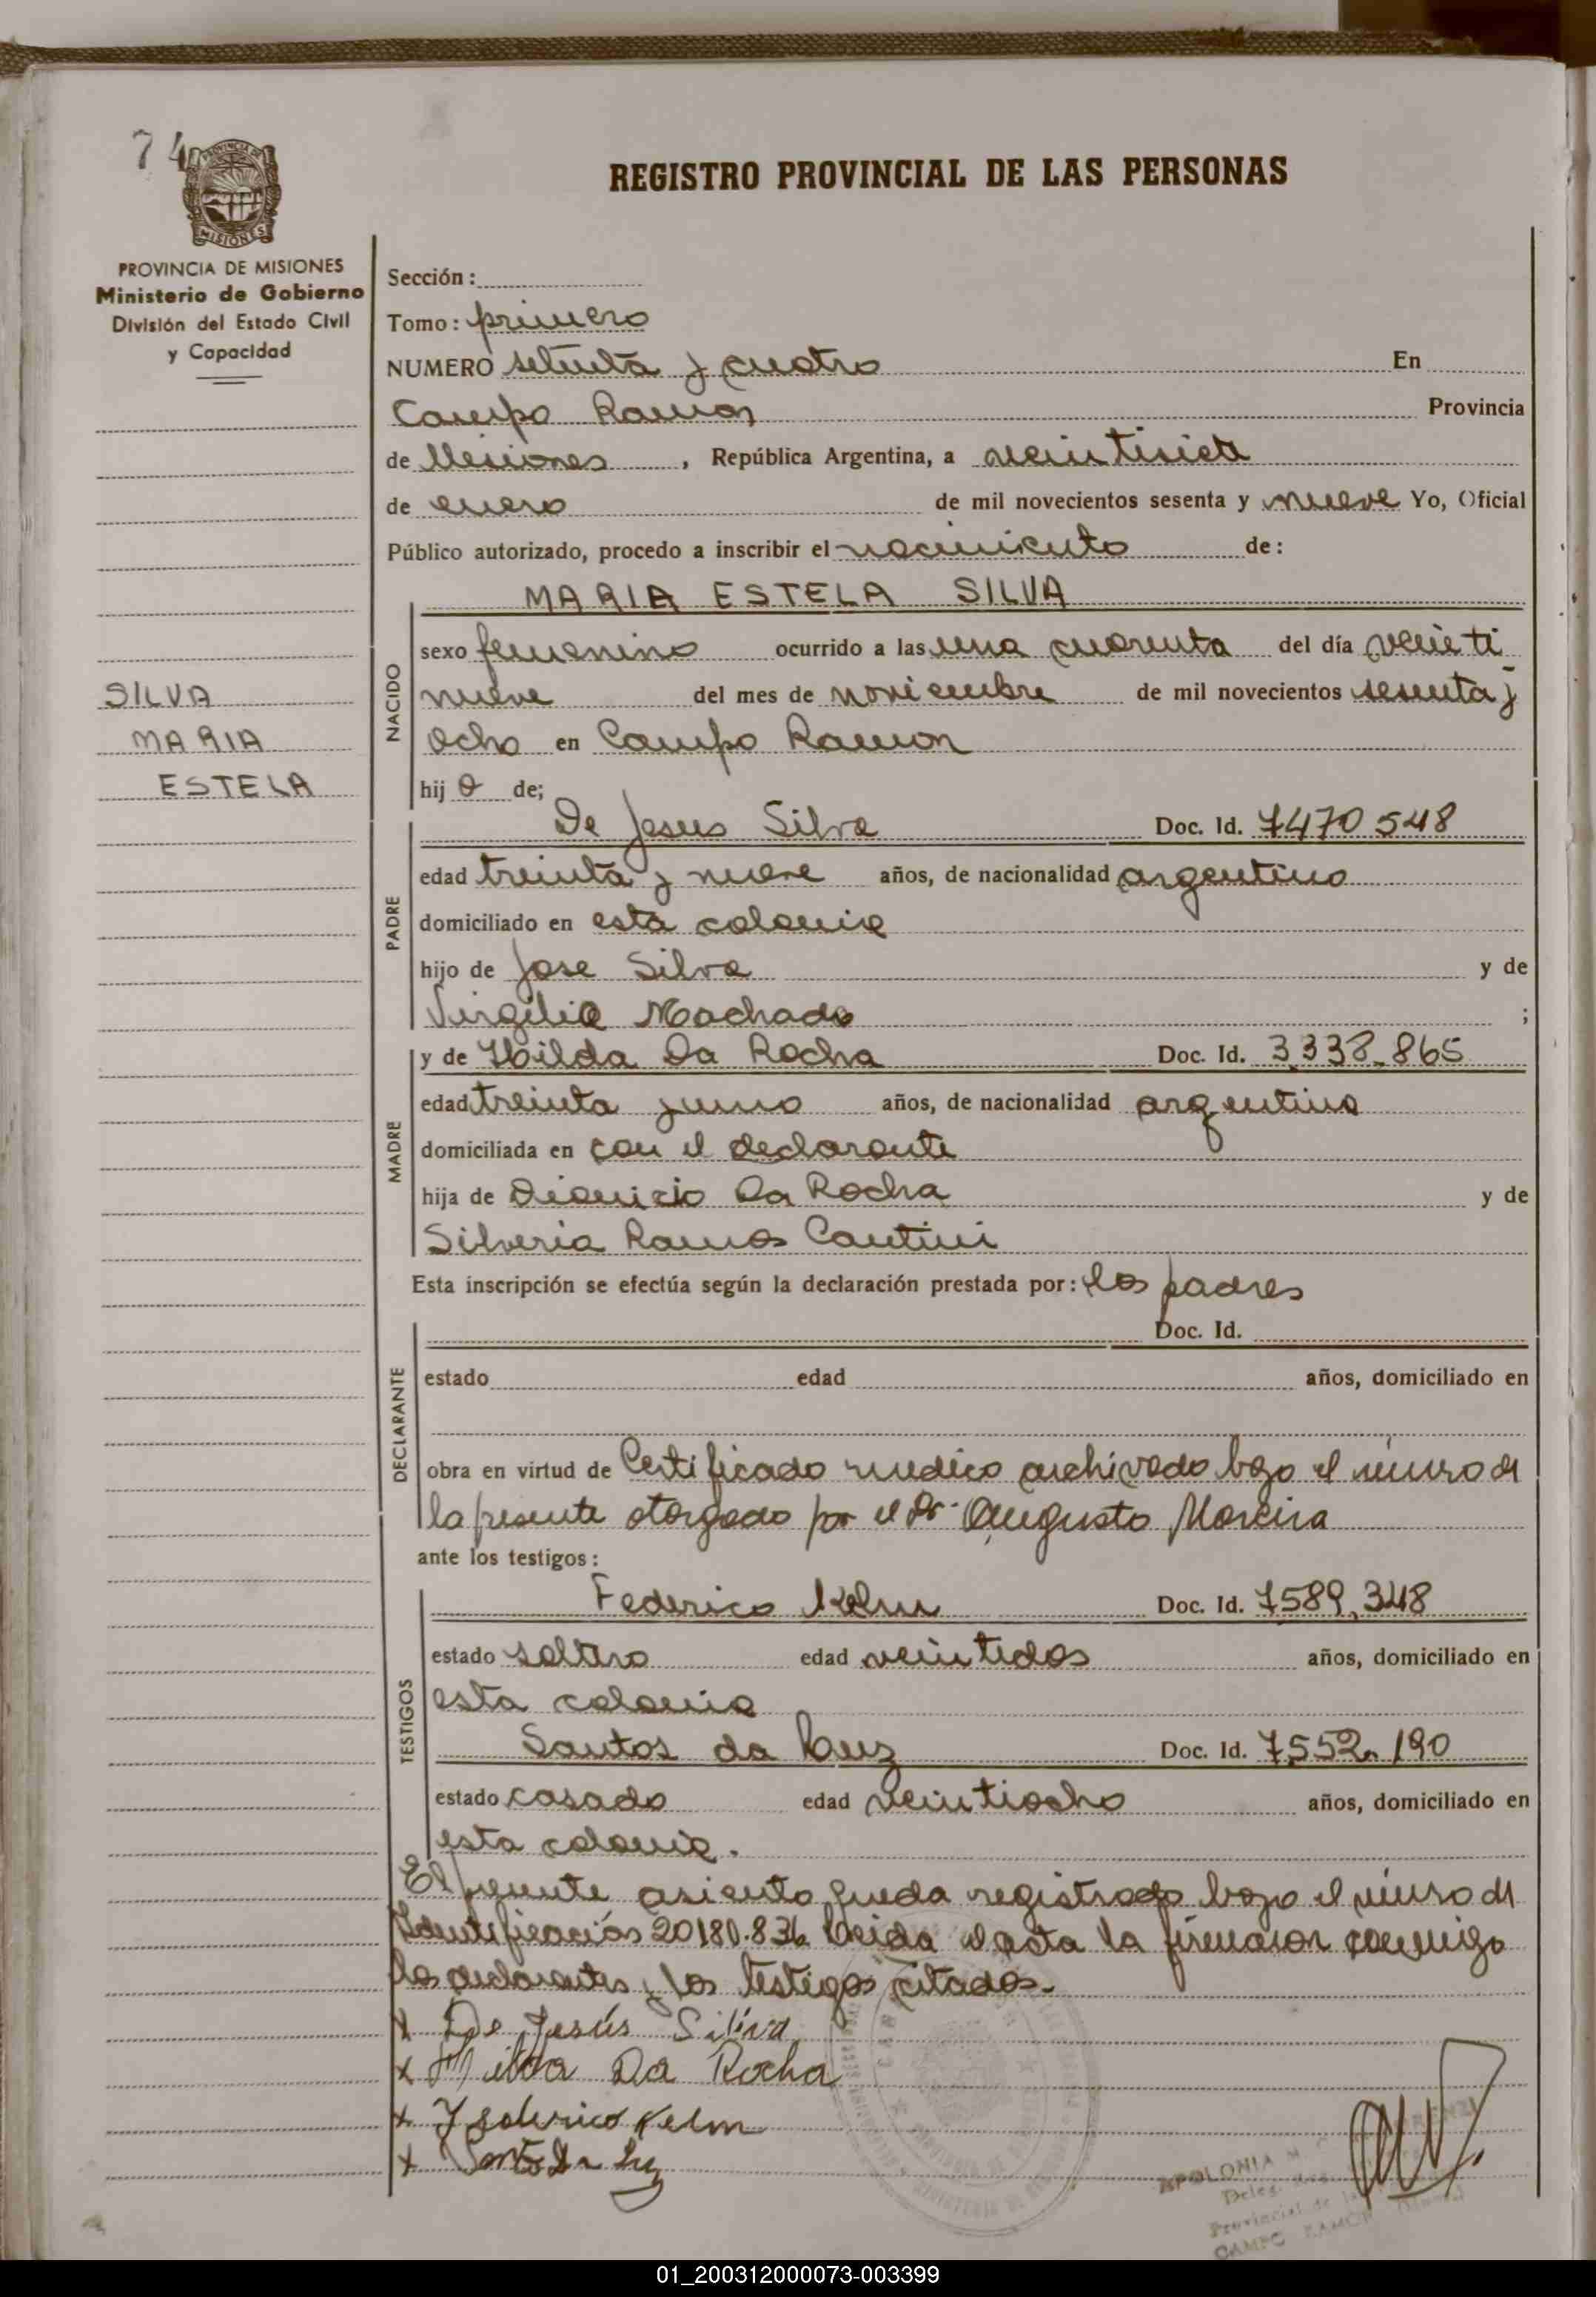 74
PROVINCIA DE
MISIONES
REGISTRO PROVINCIAL DE LAS PERSONAS
PROVINCIA DE MISIONES
Ministerio de Gobierno
División del Estado Civil
y Capacidad
SILVA
MARIA
ESTELA
Sección:
Tomo: primero
NUMERO setenta y cuatro En
Campo Ramon Provincia
de Misiones, República Argentina, a veintisiete
de enero de mil novecientos sesenta y nueve Yo, Oficial
Público autorizado, procedo a inscribir el nacimiento de:
MARIA ESTELA SILVA
NACIDO
sexo femenino ocurrido a las una cuarenta del día veinti
nueve del mes de noviembre de mil novecientos sesenta y
ocho en Campo Ramon
hija de;
PADRE
De Jesus Silva Doc. Id. 7470548
edad treinta y nueve años, de nacionalidad argentino
domiciliado en esta colonia
hijo de Jose Silva y de
Virgilia Machado ;
MADRE
y de Hilda Da Rocha Doc. Id. 3.338.865
edad treinta y uno años, de nacionalidad argentina
domiciliada en con el declarante
hija de Dionicio Da Rocha y de
Silveria Ramos Cantini
Esta inscripción se efectúa según la declaración prestada por: los padres
DECLARANTE
Doc. Id.
estado edad años, domiciliado en
obra en virtud de Certificado medico archivado bajo el número de
la presente otorgado por el Dr. Augusto Moreira
ante los testigos:
TESTIGOS
Federico Kelm Doc. Id. 7589,348
estado soltero edad veintidos años, domiciliado en
esta colonia
Santos da Luz Doc. Id. 7.552.190
estado casado edad veintiocho años, domiciliado en
esta colonia.
El presente asiento queda registrado bajo el número de
Identificación 20180.836 Leida el acta la firmaron conmigo
los declarantes y los testigos citados.
x De Jesús Silva
x Da Rocha
x Federico Kelm
x
APOLONIA M.
Deleg.
Provincial de
CAMPO RAMON
01_200312000073-003399